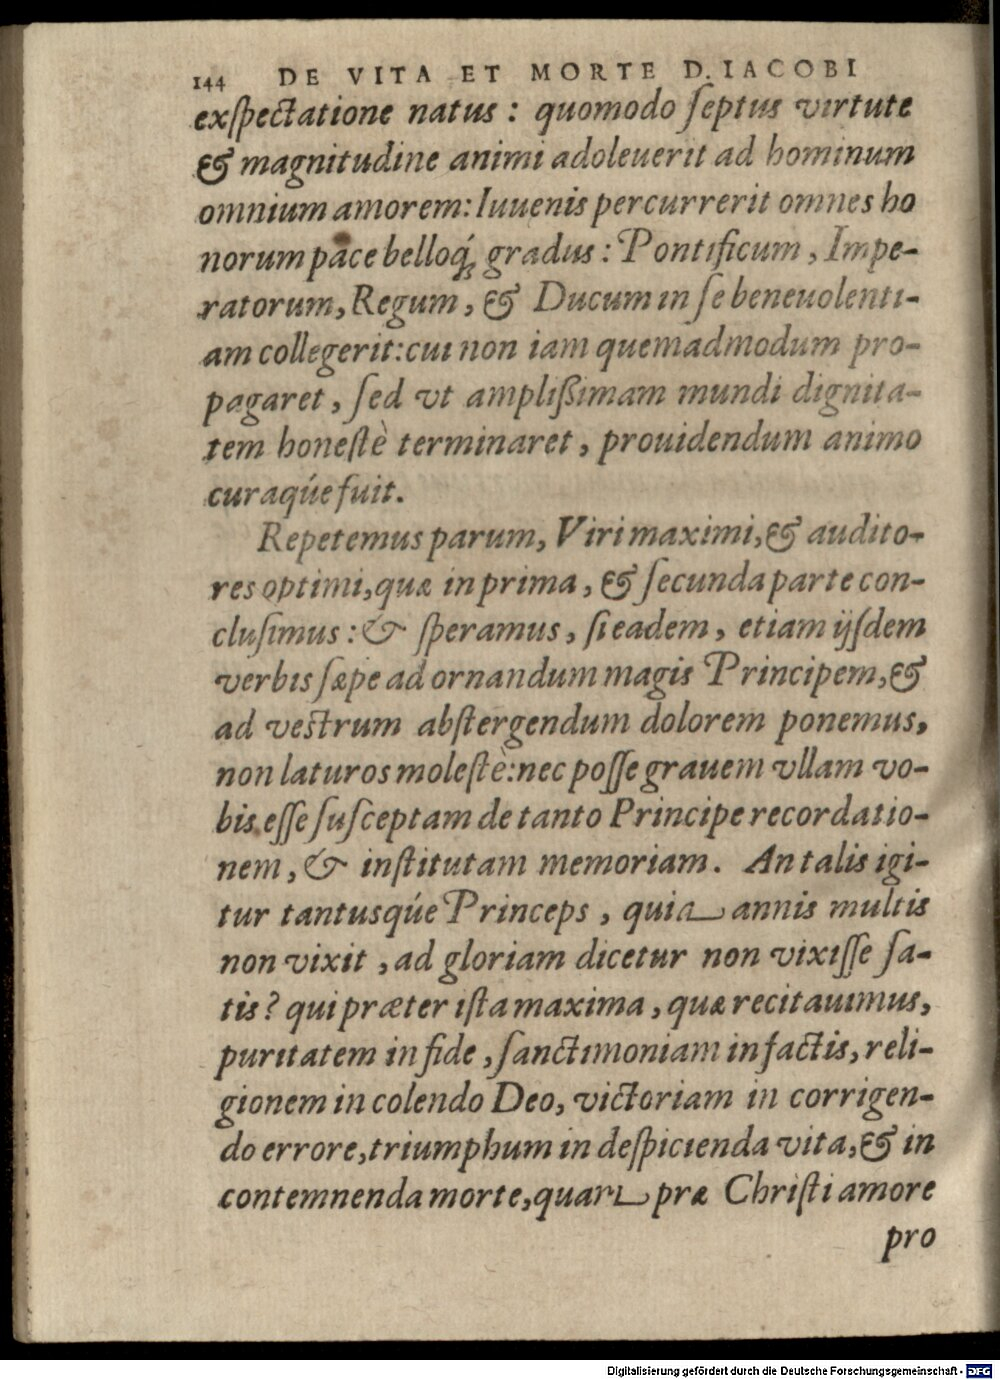 144 DE VITA ET MORTE D. IACOBI
exſpectatione natus : quomodo ſeptus virtute
& magnitudine animi adoleuerit ad hominum
omnium amorem: Iuuenis percurrerit omnes ho
norum pace belloq́; gradus : Pontificum , Impe-
ratorum, Regum , & Ducum in ſe beneuolenti-
am collegerit: cui non iam quemadmodum pro-
pagaret , ſed vt ampliſſimam mundi dignita-
tem honeſtè terminaret , prouidendum animo
curaqúe fuit.
Repetemus parum, Viri maximi, & audito-
res optimi, quæ in prima , & ſecunda parte con-
cluſimus : & ſperamus , ſi eadem , etiam ijſdem
verbis ſæpe ad ornandum magis Principem, &
ad veſtrum abſtergendum dolorem ponemus,
non laturos moleſtè: nec poſſe grauem vllam vo-
bis eſſe ſuſceptam de tanto Principe recordatio-
nem , & inſtitutam memoriam. An talis igi-
tur tantusqúe Princeps , quia annis multis
non vixit , ad gloriam dicetur non vixiſſe ſa-
tis? qui præter iſta maxima , quæ recitauimus,
puritatem in fide , ſanctimoniam in factis, reli-
gionem in colendo Deo, victoriam in corrigen-
do errore, triumphum in deſpicienda vita, & in
contemnenda morte, quam præ Chriſti amore
pro
Digitalisierung gefördert durch die Deutsche Forschungsgemeinschaft - DFG